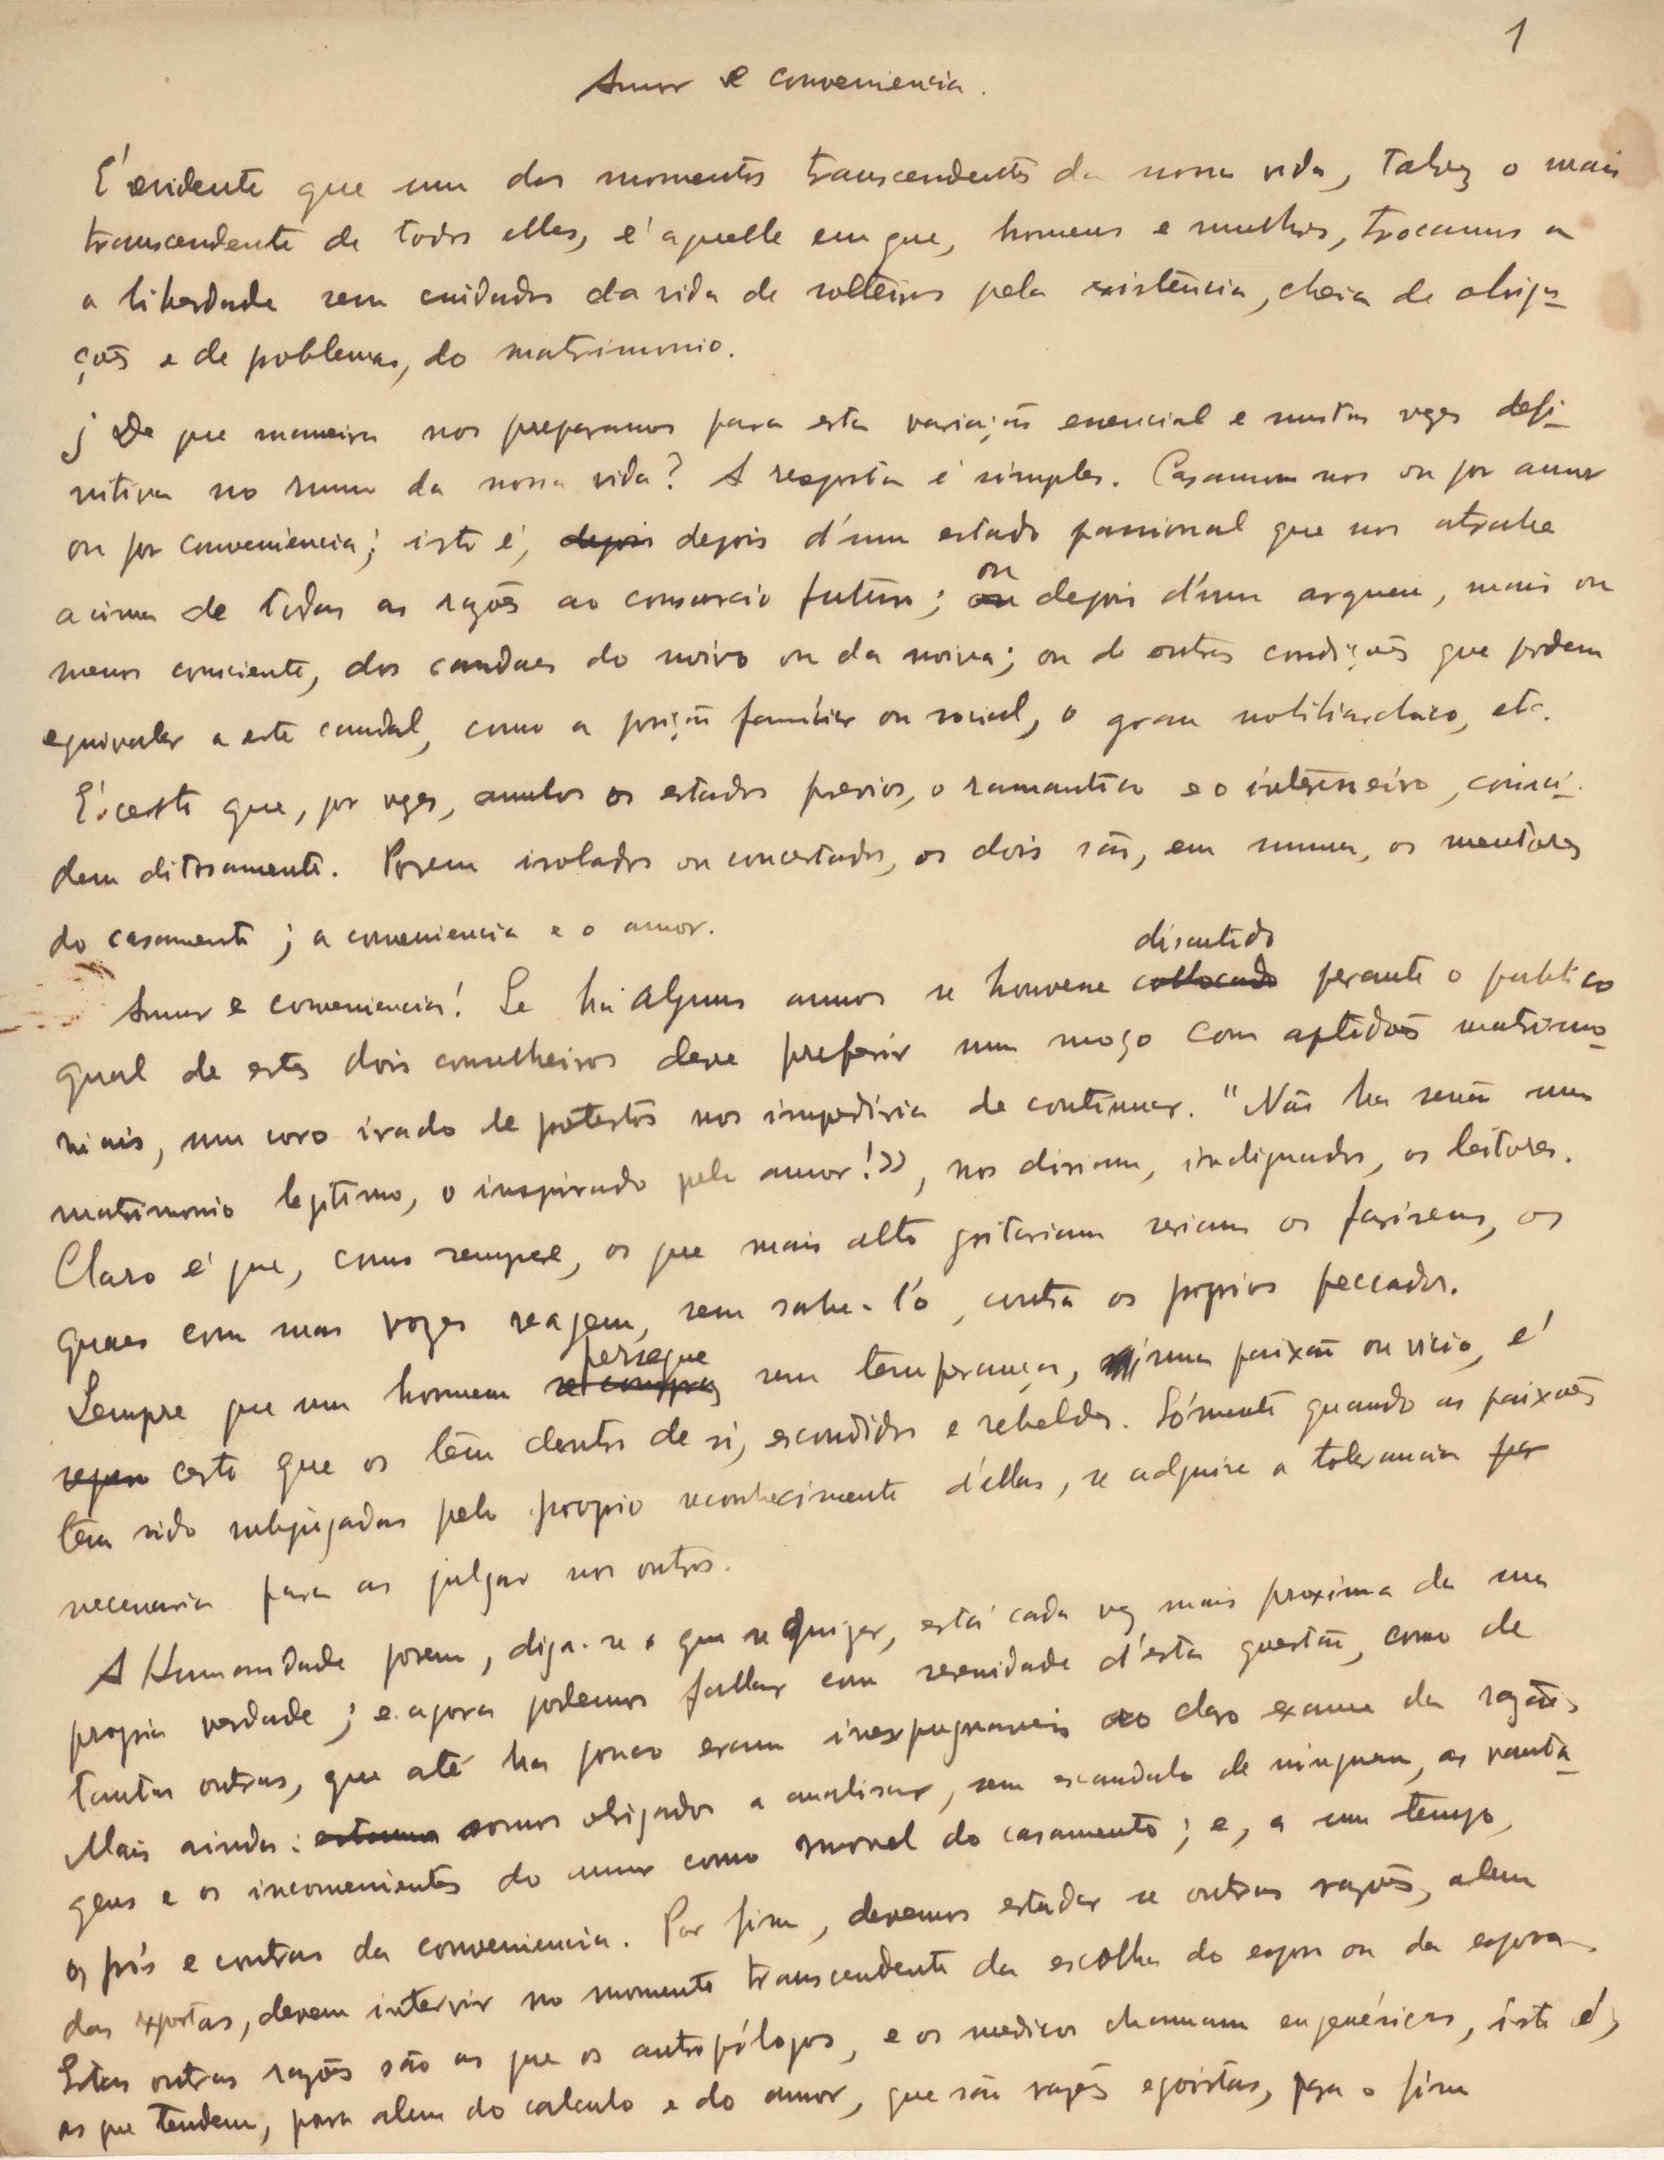 1
Amor e conveniencia.
É evidente que um dos momentos transcendentes da nossa vida, talvez o mais
transcendente de todos elles, é aquelle em que, homens e mulheres, trocamos a
a liberdade sem cuidados da vida de solteiros pela existência, cheia de obriga-
ções e de problemas, do matrimonio.
¿ De que maneira nos preparamos para esta variação essencial e muitas vezes defi-
nitiva no rumo da nossa vida? A resposta é simples. Casamos nos ou por amor
ou por conveniencia; isto é, depois depois d'um estado passional que nos atrahe
acima de todas as razões ao consorcio futuro; ou ou depois d'um arqueu, mais ou
menos consciente, dos caudaes do noivo ou da noiva; ou de outras condições que podem
equivaler a este caudal, como a posição familiar ou social, o grau nobiliarchico, etc.
É certo que, por vezes, ambos os estados previos, o romantico e o interesseiro, coinci-
dem ditosamente. Porem isolados ou concertados, os dois são, em summa, os mentores
do casamento; a conveniencia e o amor.
Amor e conveniencia! Se ha alguns annos se houvesse collocado discutido perante o publico
qual de estes dois conselheiros deve preferir um moço com aptidões matrimo-
niais, um coro irado de protestos nos impediria de continuar. "Não ha senão um
matrimonio legitimo, o inspirado pelo amor!», nos diriam, indignados, os leitores.
Claro é que, como sempre, os que mais alto gritariam seriam os fariseus, os
quaes com suas vozes reagem, sem sabe-l'o, contra os proprios peccados.
Sempre que um homem persegue sem temperança, uma paixão ou vicio, é
certo que os têm dentro de si, escondidos e rebeldes. Sómente quando as paixões
têm sido subjugadas pelo proprio reconhecimento d'ellas, se adquire a tolerancia per
necessaria para as julgar nos outros.
A Humanidade porem, diga-se o que se quizer, está cada vez mais proxima da sua
propria verdade; e agora podemos fallar com serenidade d'esta questão, como de
tantas outras, que até ha pouco eram inexpugnaveis ao claro exame da razão.
Mais ainda: estamos somos obrigados a analisar, sem escandalo de ninguem, as vanta-
gens e os inconvenientes do amor como movel do casamento; e, a um tempo,
os prós e contras da conveniencia. Por fim, devemos estudar se outras razões, alem
das expostas, devem intervir no momento transcendente da escolha do esposo ou da esposa.
Estas outras razões são as que os antropólogos, e os medicos chamam eugenésicas, isto é,
as que tendem, para alem do calculo e do amor, que são razões egoistas, para o fim